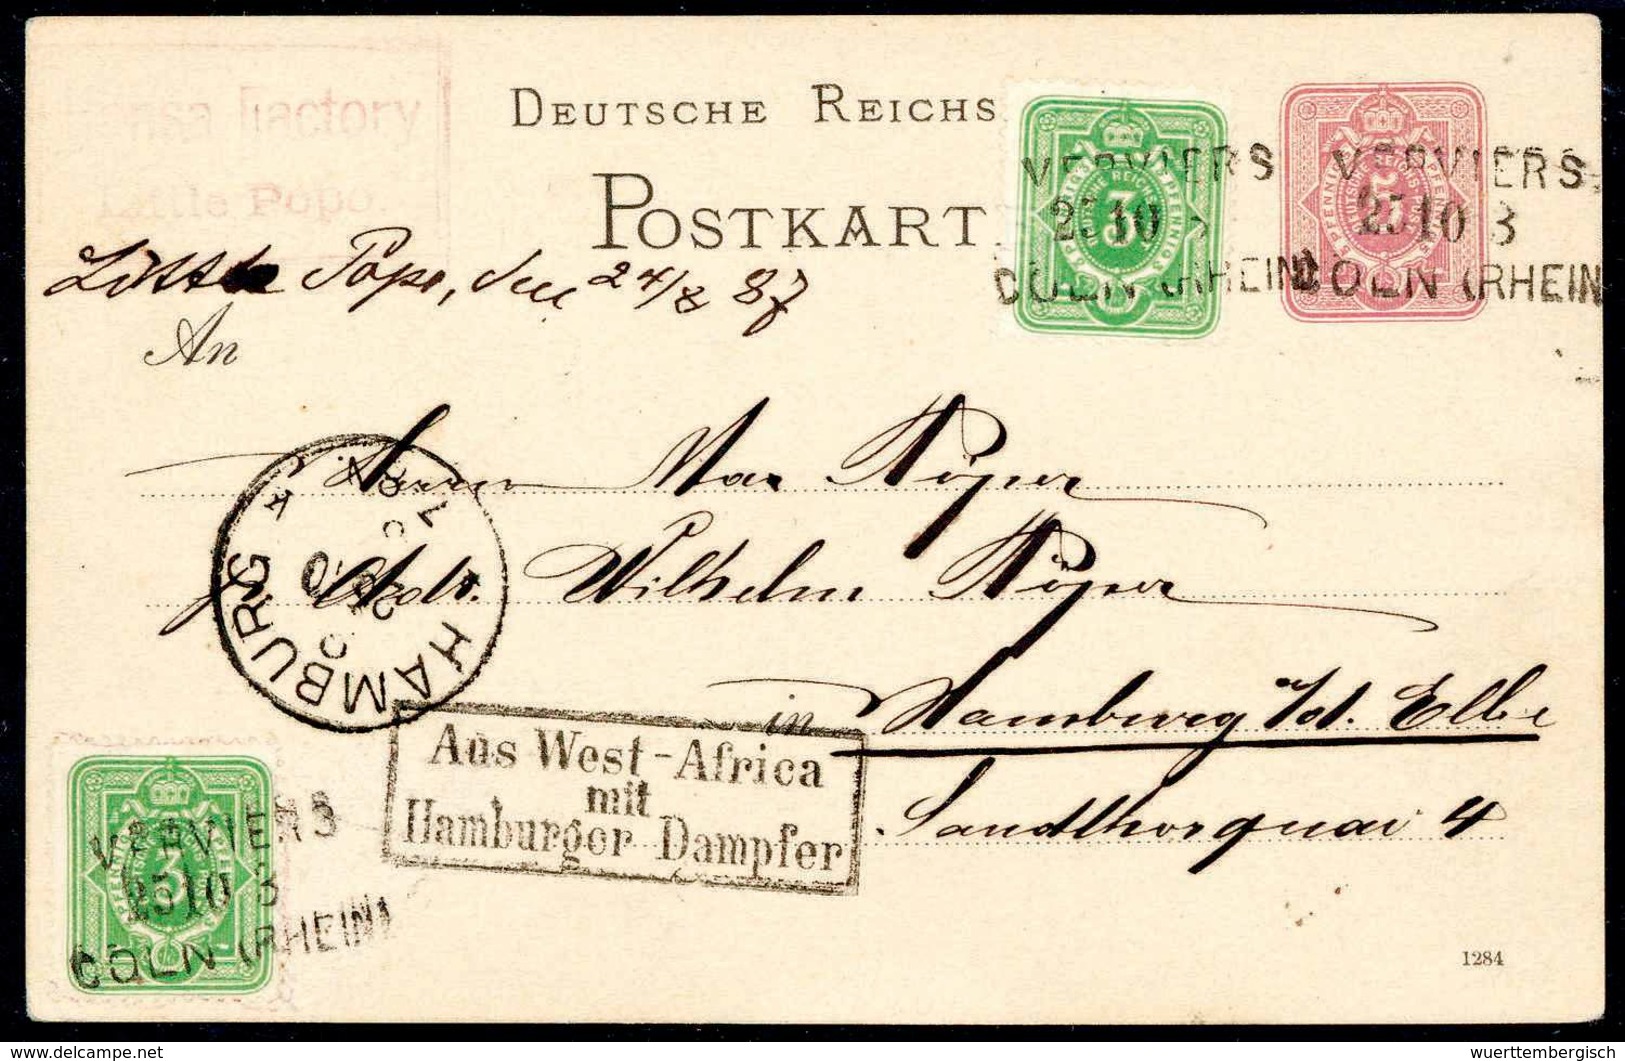 Hansa Factory
Little Popo.
DEUTSCHE REICHS
POSTKART
Little Popo, den 24/8 87
An
VERVIERS
25 10 3
CÖLN (RHEIN)
VERVIERS
25 10 3
CÖLN (RHEIN
Herrn Max Röper
Adr. Wilhelm Röper
in Hamburg a/d. Elbe
Sandthorquai 4
HAMBURG
Aus West-Africa
mit
Hamburger Dampfer
VERVIERS
25 10 3
CÖLN (RHEIN)
1284
© delcampe.net
wuerttembergisch